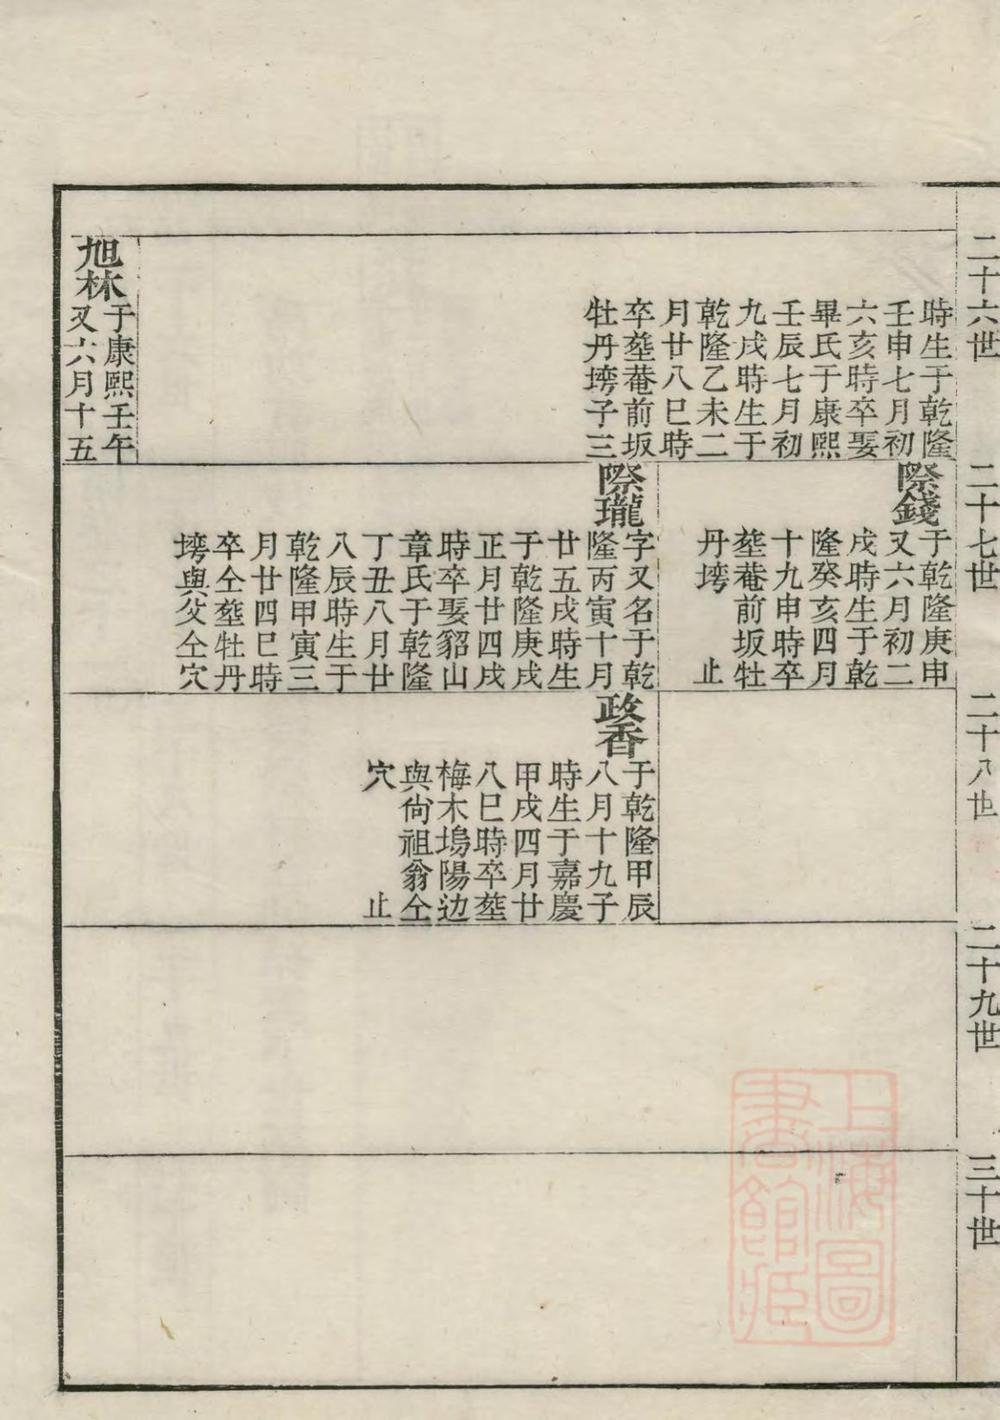 二十六世
時生于乾隆
壬申七月初
六亥時卒娶
畢氏于康熙
壬辰七月初
九戌時生于
乾隆乙未二
月廿八巳時
卒塟菴前坂
牡丹塝子三
旭林
于康熙壬午
又六月十五
二十七世
際錢
于乾隆庚申
又六月初二
戌時生于乾
隆癸亥四月
十九申時卒
塟菴前坂牡
丹塝 止
際瓏
字又名于乾
隆丙寅十月
廿五戌時生
于乾隆庚戌
正月廿四戌
時卒娶貂山
章氏于乾隆
丁丑八月廿
八辰時生于
乾隆甲寅三
月廿四巳時
卒仝塟牡丹
塝與父仝穴
二十八世
政香
于乾隆甲辰
八月十九子
時生于嘉慶
甲戌四月廿
八巳時卒塟
梅木塢陽边
與尙祖翁仝
穴 止
二十九世
三十世
上海圖
書館藏